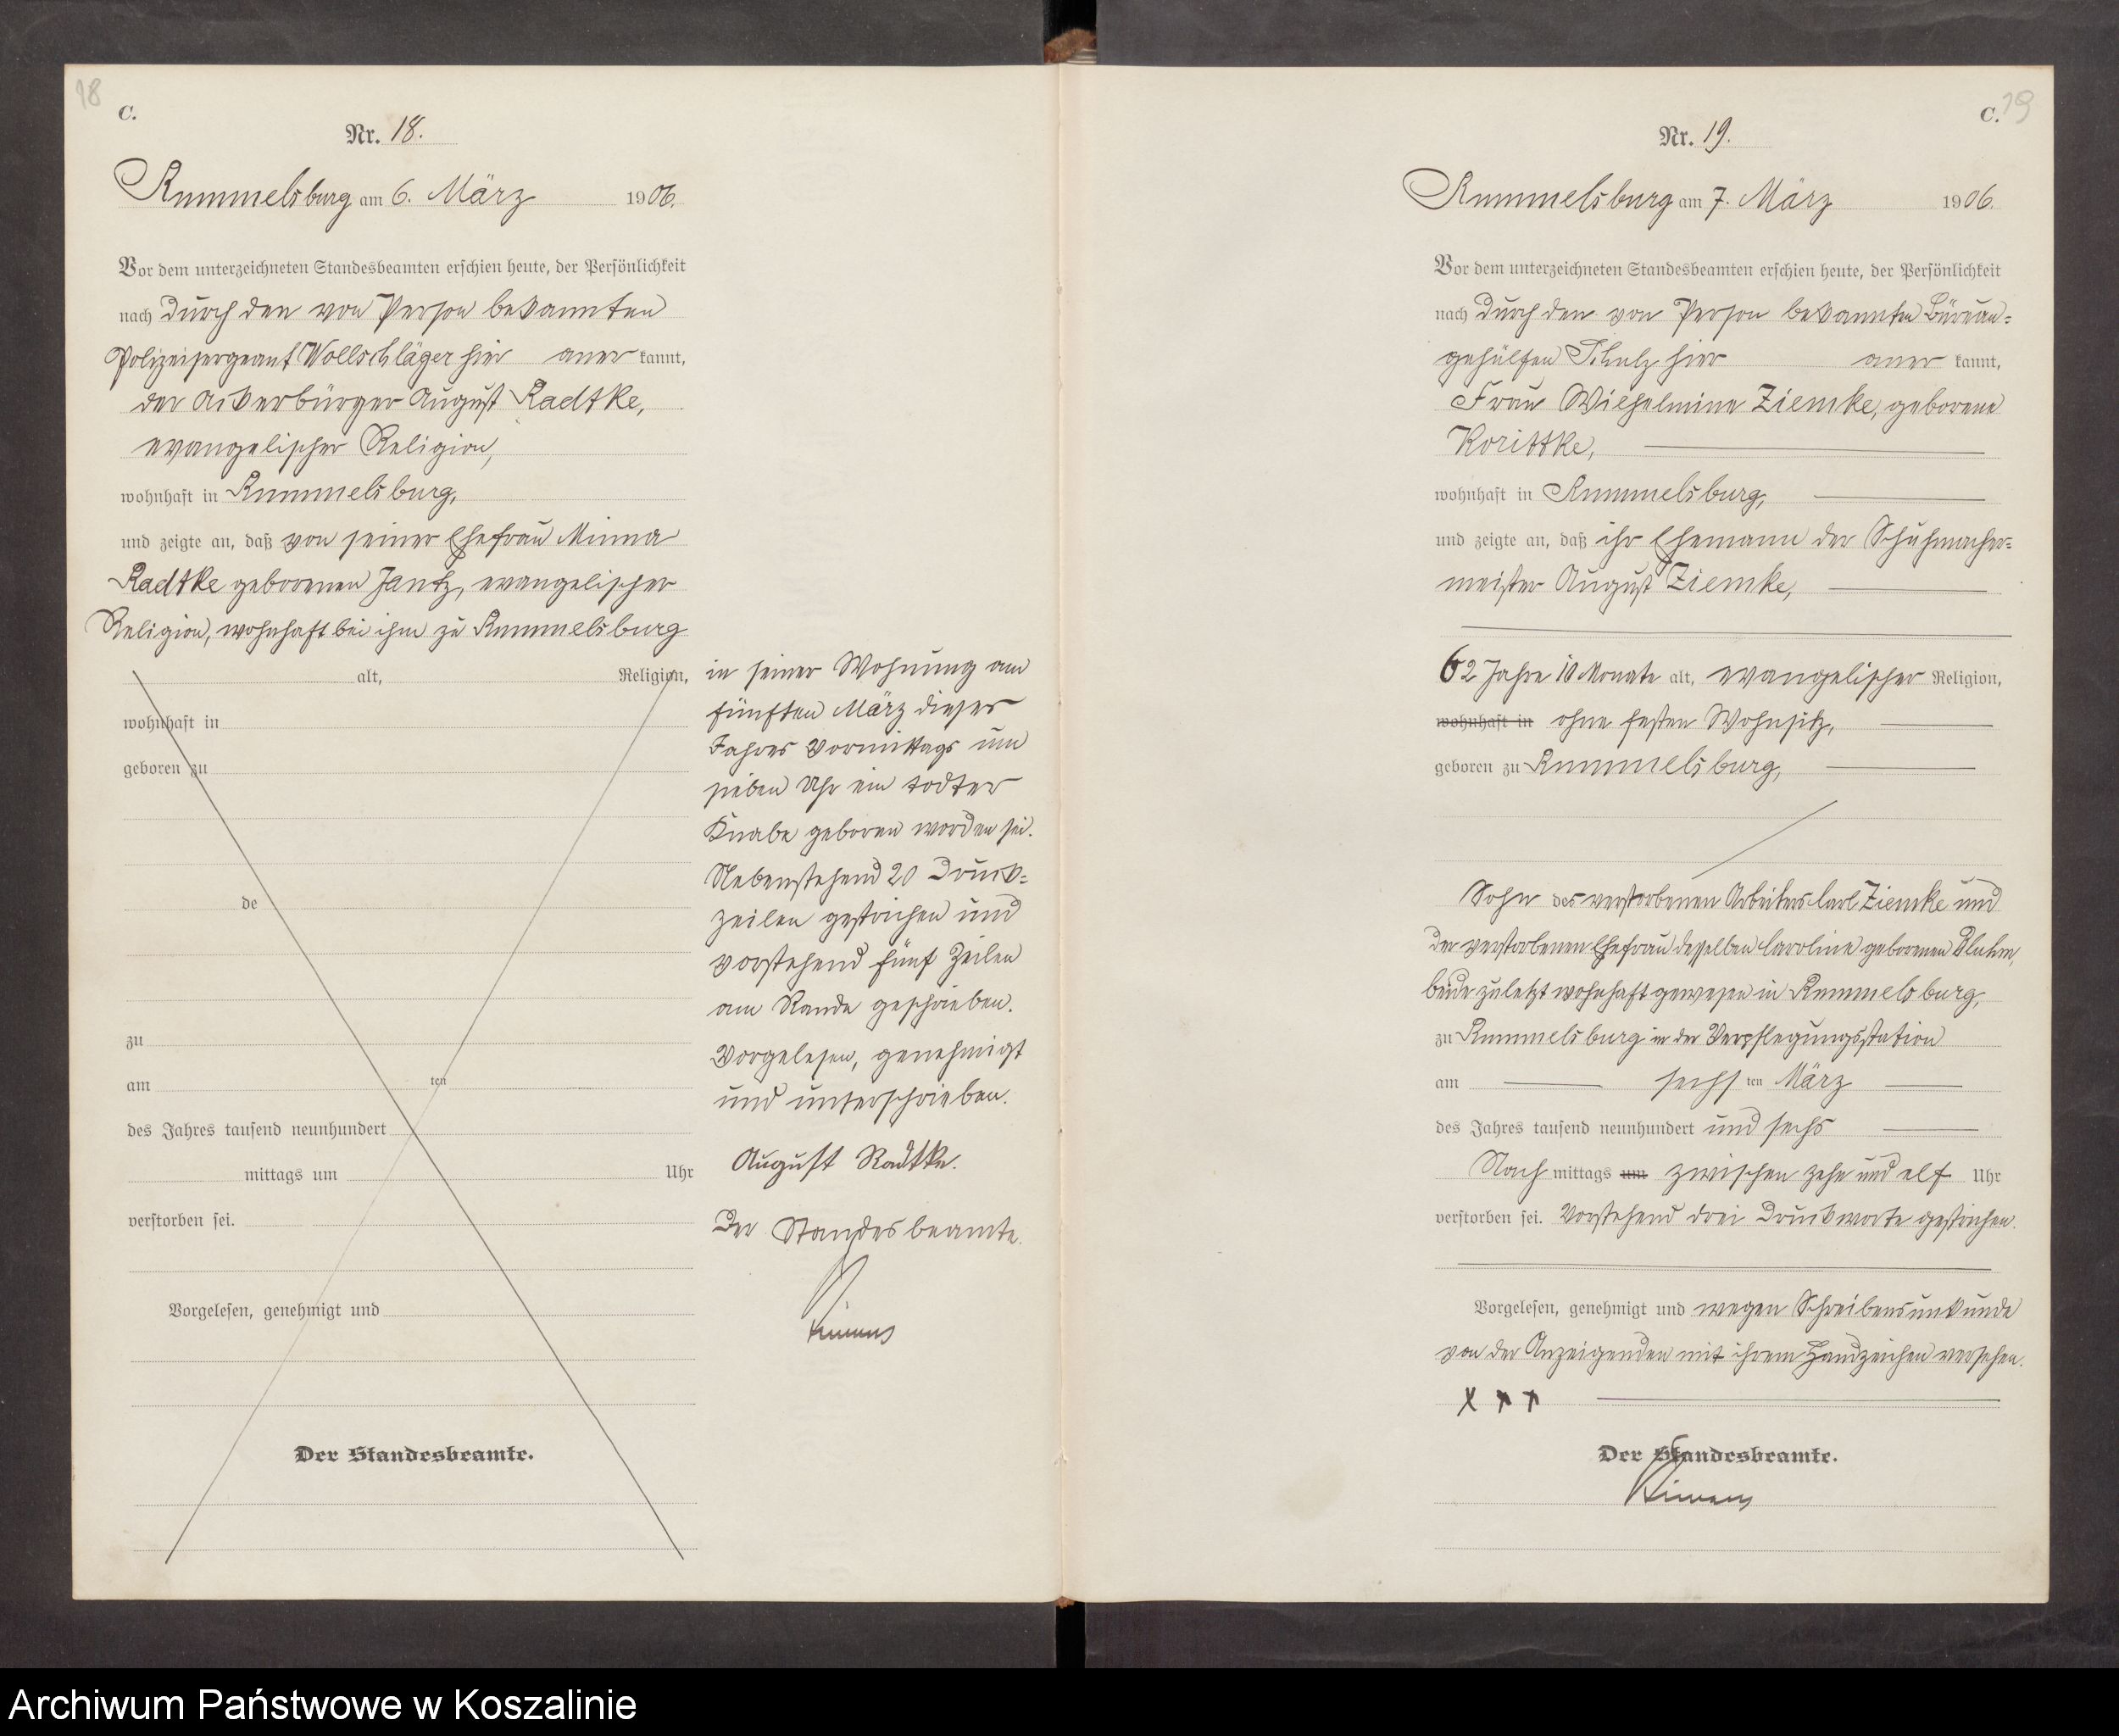 18
C.
Nr. 18.
Rummelsburg am 6. März 1906.
Vor dem unterzeichneten Standesbeamten erschien heute, der Persönlichkeit
nach durch den von Person bekannten
Polizeisergeant Wollschläger hier aner kannt,
der Ackerbürger August Radtke,
evangelischer Religion,
wohnhaft in Rummelsburg,
und zeigte an, daß von seiner Ehefrau Minna
Radtke geborenen Jantz, evangelischer
Religion, wohnhaft bei ihm zu Rummelsburg
alt, Religion,
wohnhaft in
geboren zu
de
zu
am ten
des Jahres tausend neunhundert
mittags um Uhr
verstorben sei.
Vorgelesen, genehmigt und
Der Standesbeamte.
in seiner Wohnung am
fünften März dieses
Jahres Vormittags um
sieben Uhr ein todter
Knabe geboren worden sei.
Nebenstehend 20 Druck-
zeilen gestrichen und
vorstehend fünf Zeilen
am Rande geschrieben.
Vorgelesen, genehmigt
und unterschrieben.
August Radtke.
Der Standesbeamte.
19
C.
Nr. 19.
Rummelsburg am 7. März 1906.
Vor dem unterzeichneten Standesbeamten erschien heute, der Persönlichkeit
nach durch den von Person bekannten Büreau-
gehülfen Schulz hier aner kannt,
Frau Wilhelmine Ziemke, geborene
Korittke,
wohnhaft in Rummelsburg,
und zeigte an, daß ihr Ehemann der Schuhmacher-
meister August Ziemke,
62 Jahre 10 Monate alt, evangelischer Religion,
wohnhaft in ohne festen Wohnsitz,
geboren zu Rummelsburg,
Sohn des verstorbenen Arbeiters Carl Ziemke und
der verstorbenen Ehefrau desselben Caroline geborenen Bluhm,
beide zuletzt wohnhaft gewesen in Rummelsburg,
zu Rummelsburg in der Verpflegungsstation
am sechs ten März
des Jahres tausend neunhundert und sechs
Nach mittags um zwischen zehn und elf Uhr
verstorben sei. Vorstehend drei Druckworte gestrichen.
Vorgelesen, genehmigt und wegen Schreibensunkunde
von der Anzeigenden mit ihrem Handzeichen versehen.
x x x
Der Standesbeamte.
Archiwum Państwowe w Koszalinie